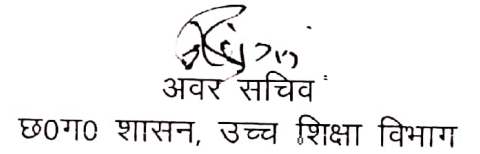 अवर सचिव
छ0ग0 शासन, उच्च शिक्षा विभाग